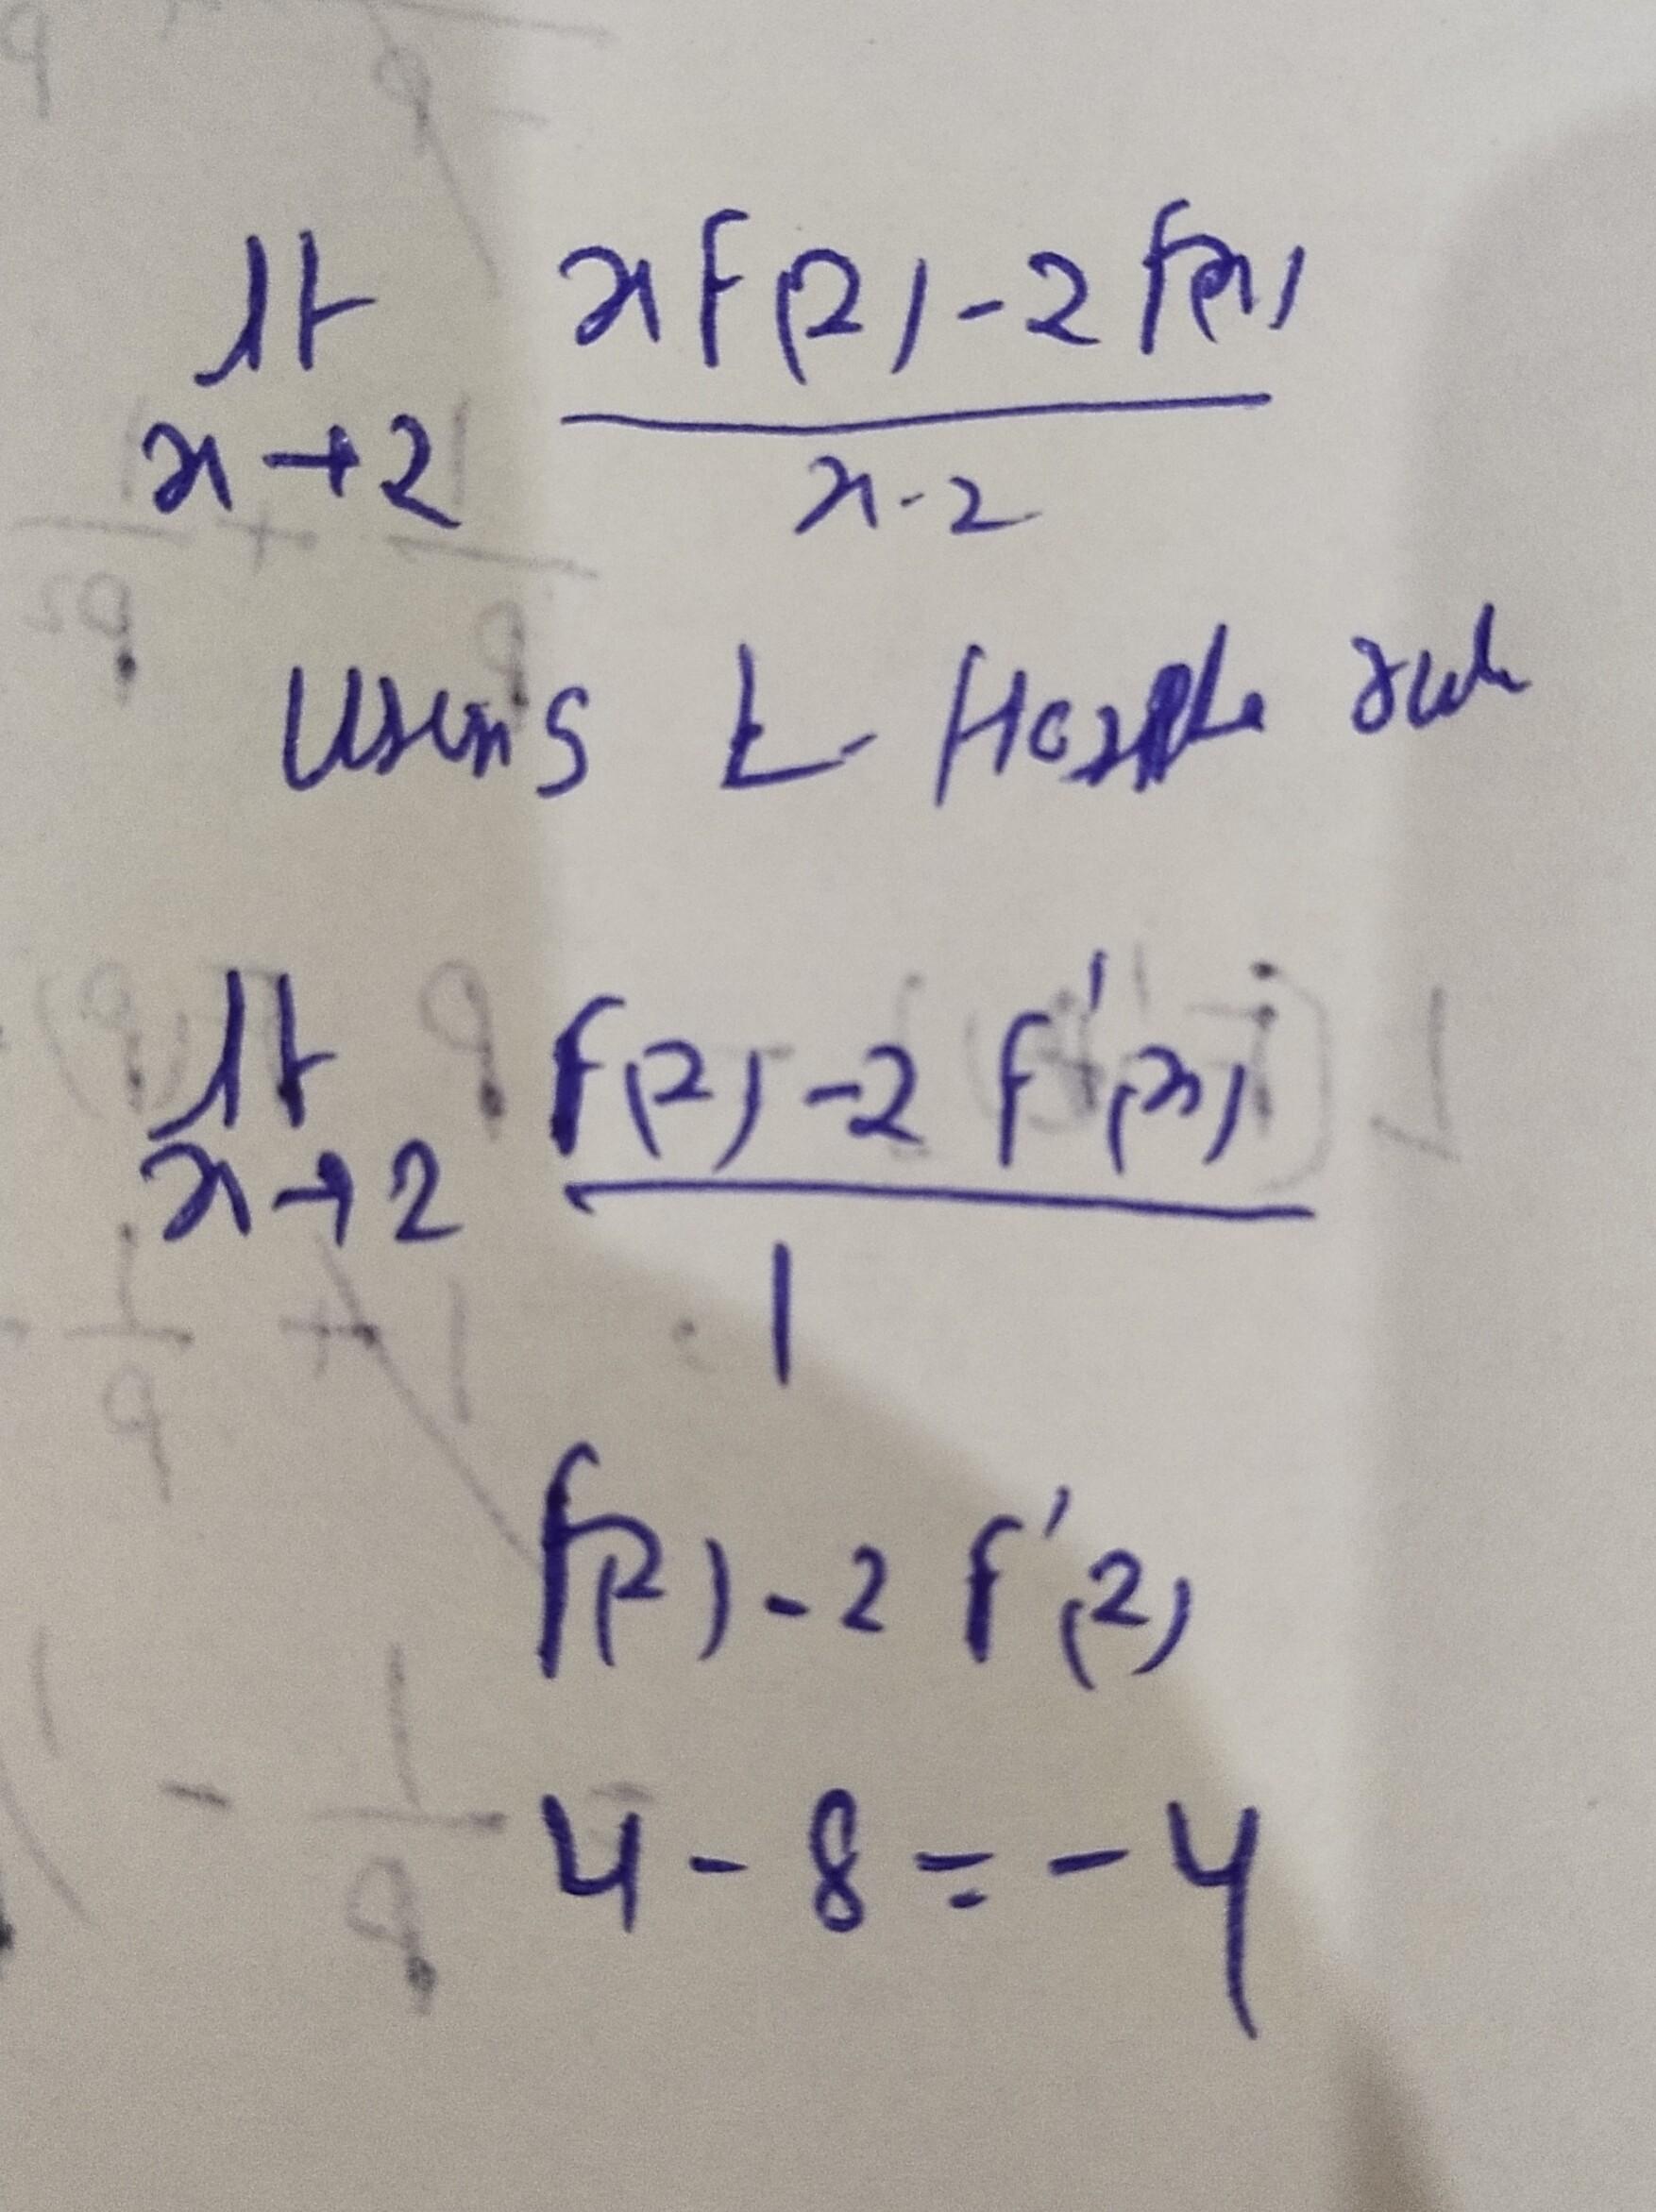 lt x f(2) - 2 f(x)
x→2 x-2
Using L Hospital rule
lt f(2) - 2 f'(x)
x→2 1
f(2) - 2 f'(2)
4 - 8 = -4